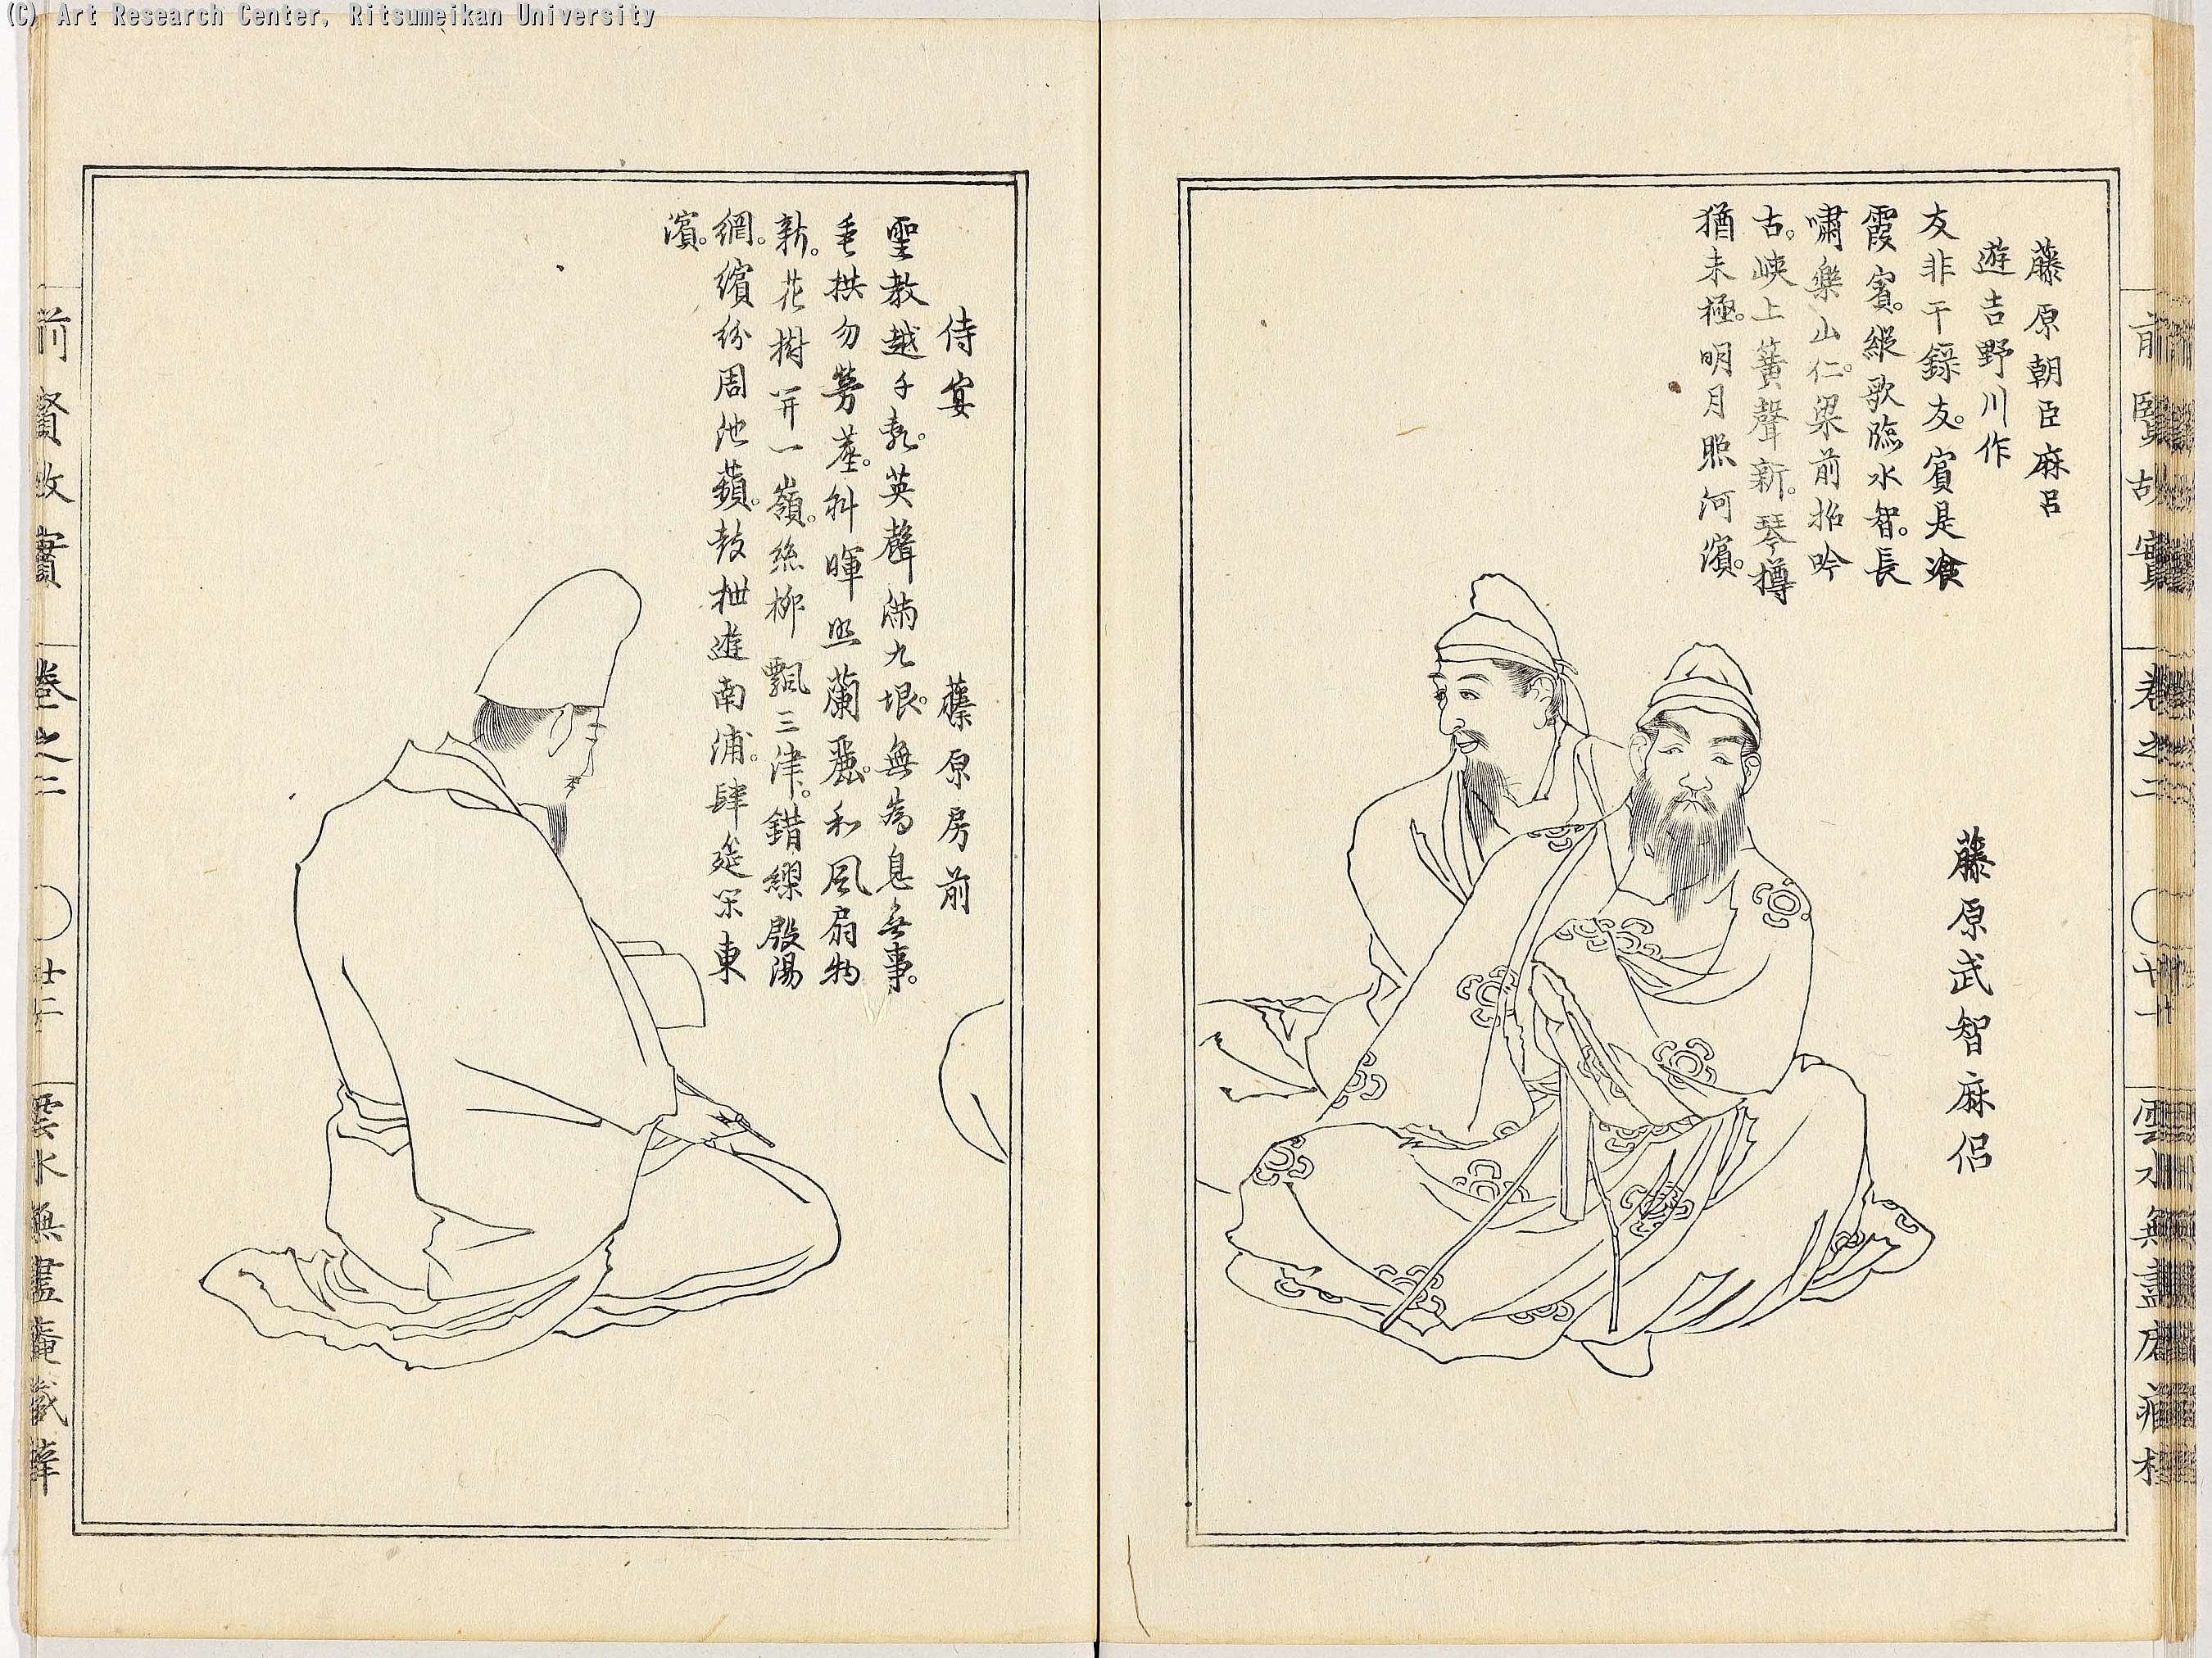 (C) Art Research Center, Ritsumeikan University
藤原朝臣麻呂
遊吉野川作
友非干錄友。賓是飡
霞賓。縱歌臨水智。長
嘯樂山仁。梁前招吟
古。峽上簧聲新。琴樽
猶未極。明月照河濱。
藤原武智麻侶
侍宴 藤原房前
聖教越千禩。英聲滿九垠。無為息無事。
垂拱勿勞塵。斜暉照蘭麗。和風扇物
新。花樹開一嶺。絲柳飄三津。錯繆殷湯
網。繽紛周池蘋。鼓枻遊南浦。肆筵樂東
濱。
前賢故實 卷之二 廿二 雲水無盡庵藏